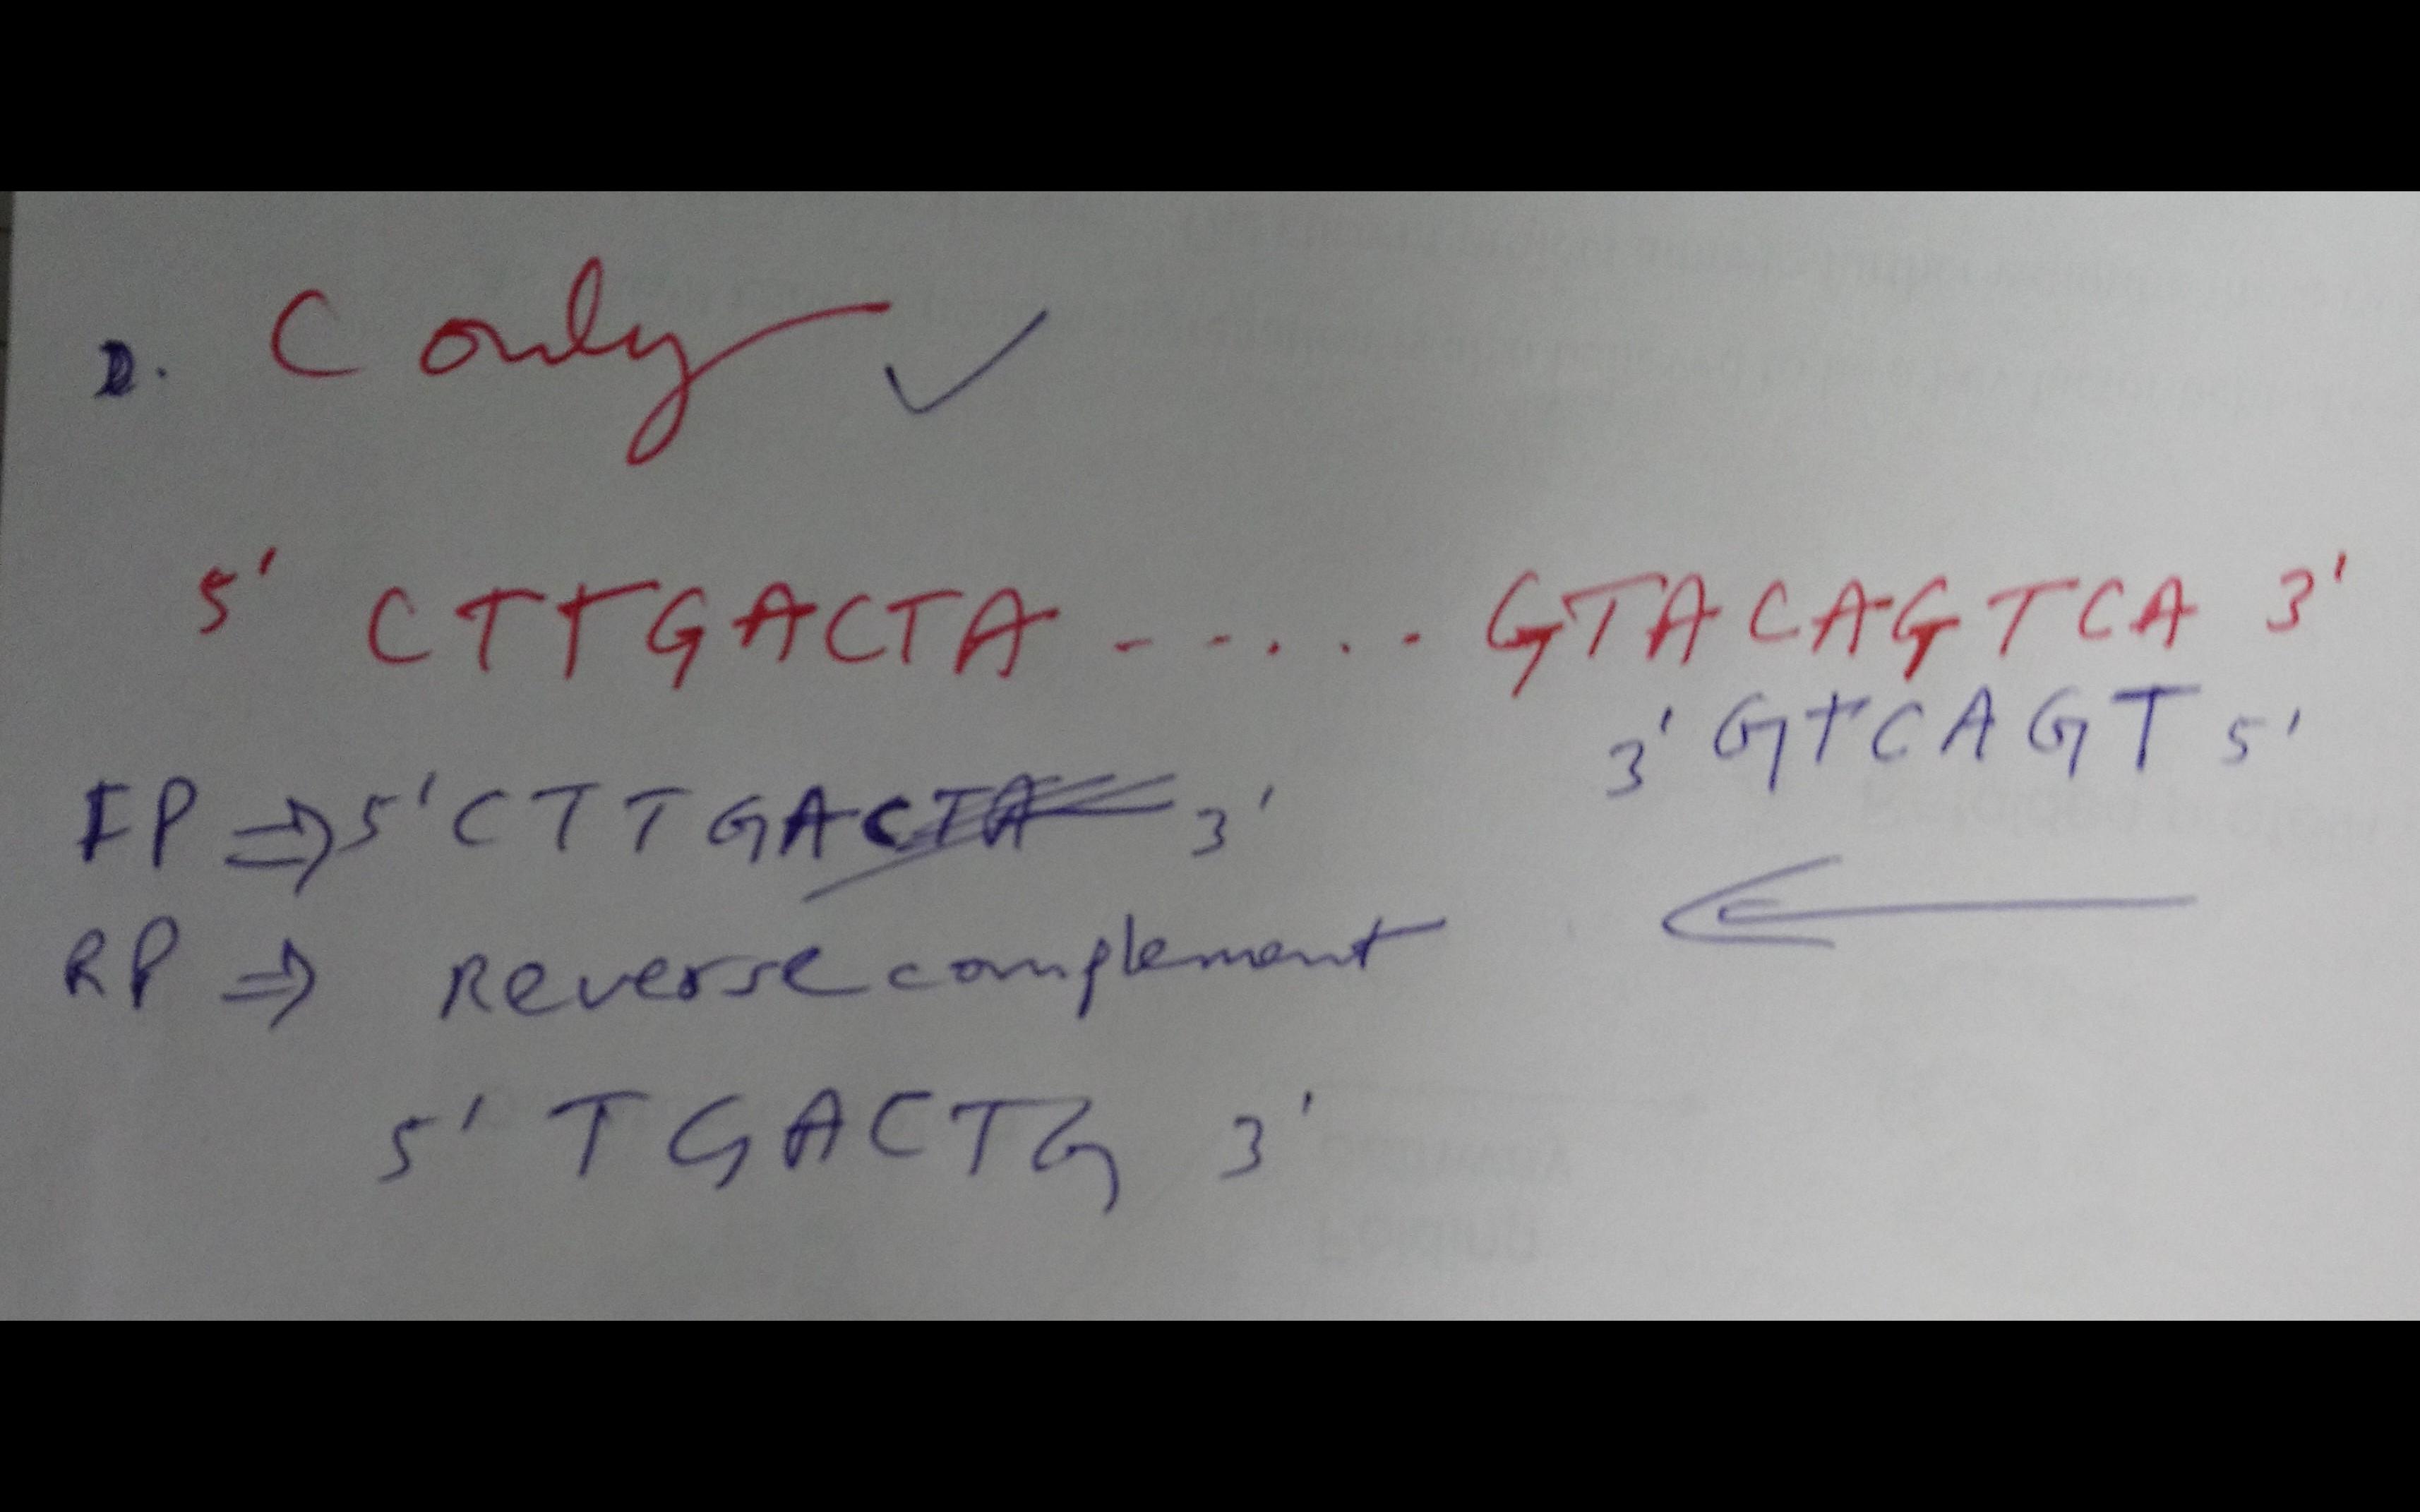 D. C only ✓
5' CTTGACTA - - . . . . GTACAGTCA 3'
3' GTCAGT 5'
FP ⇒ 5' CTTGACTA 3'
RP ⇒ Reverse complement
5' TGACTG 3'